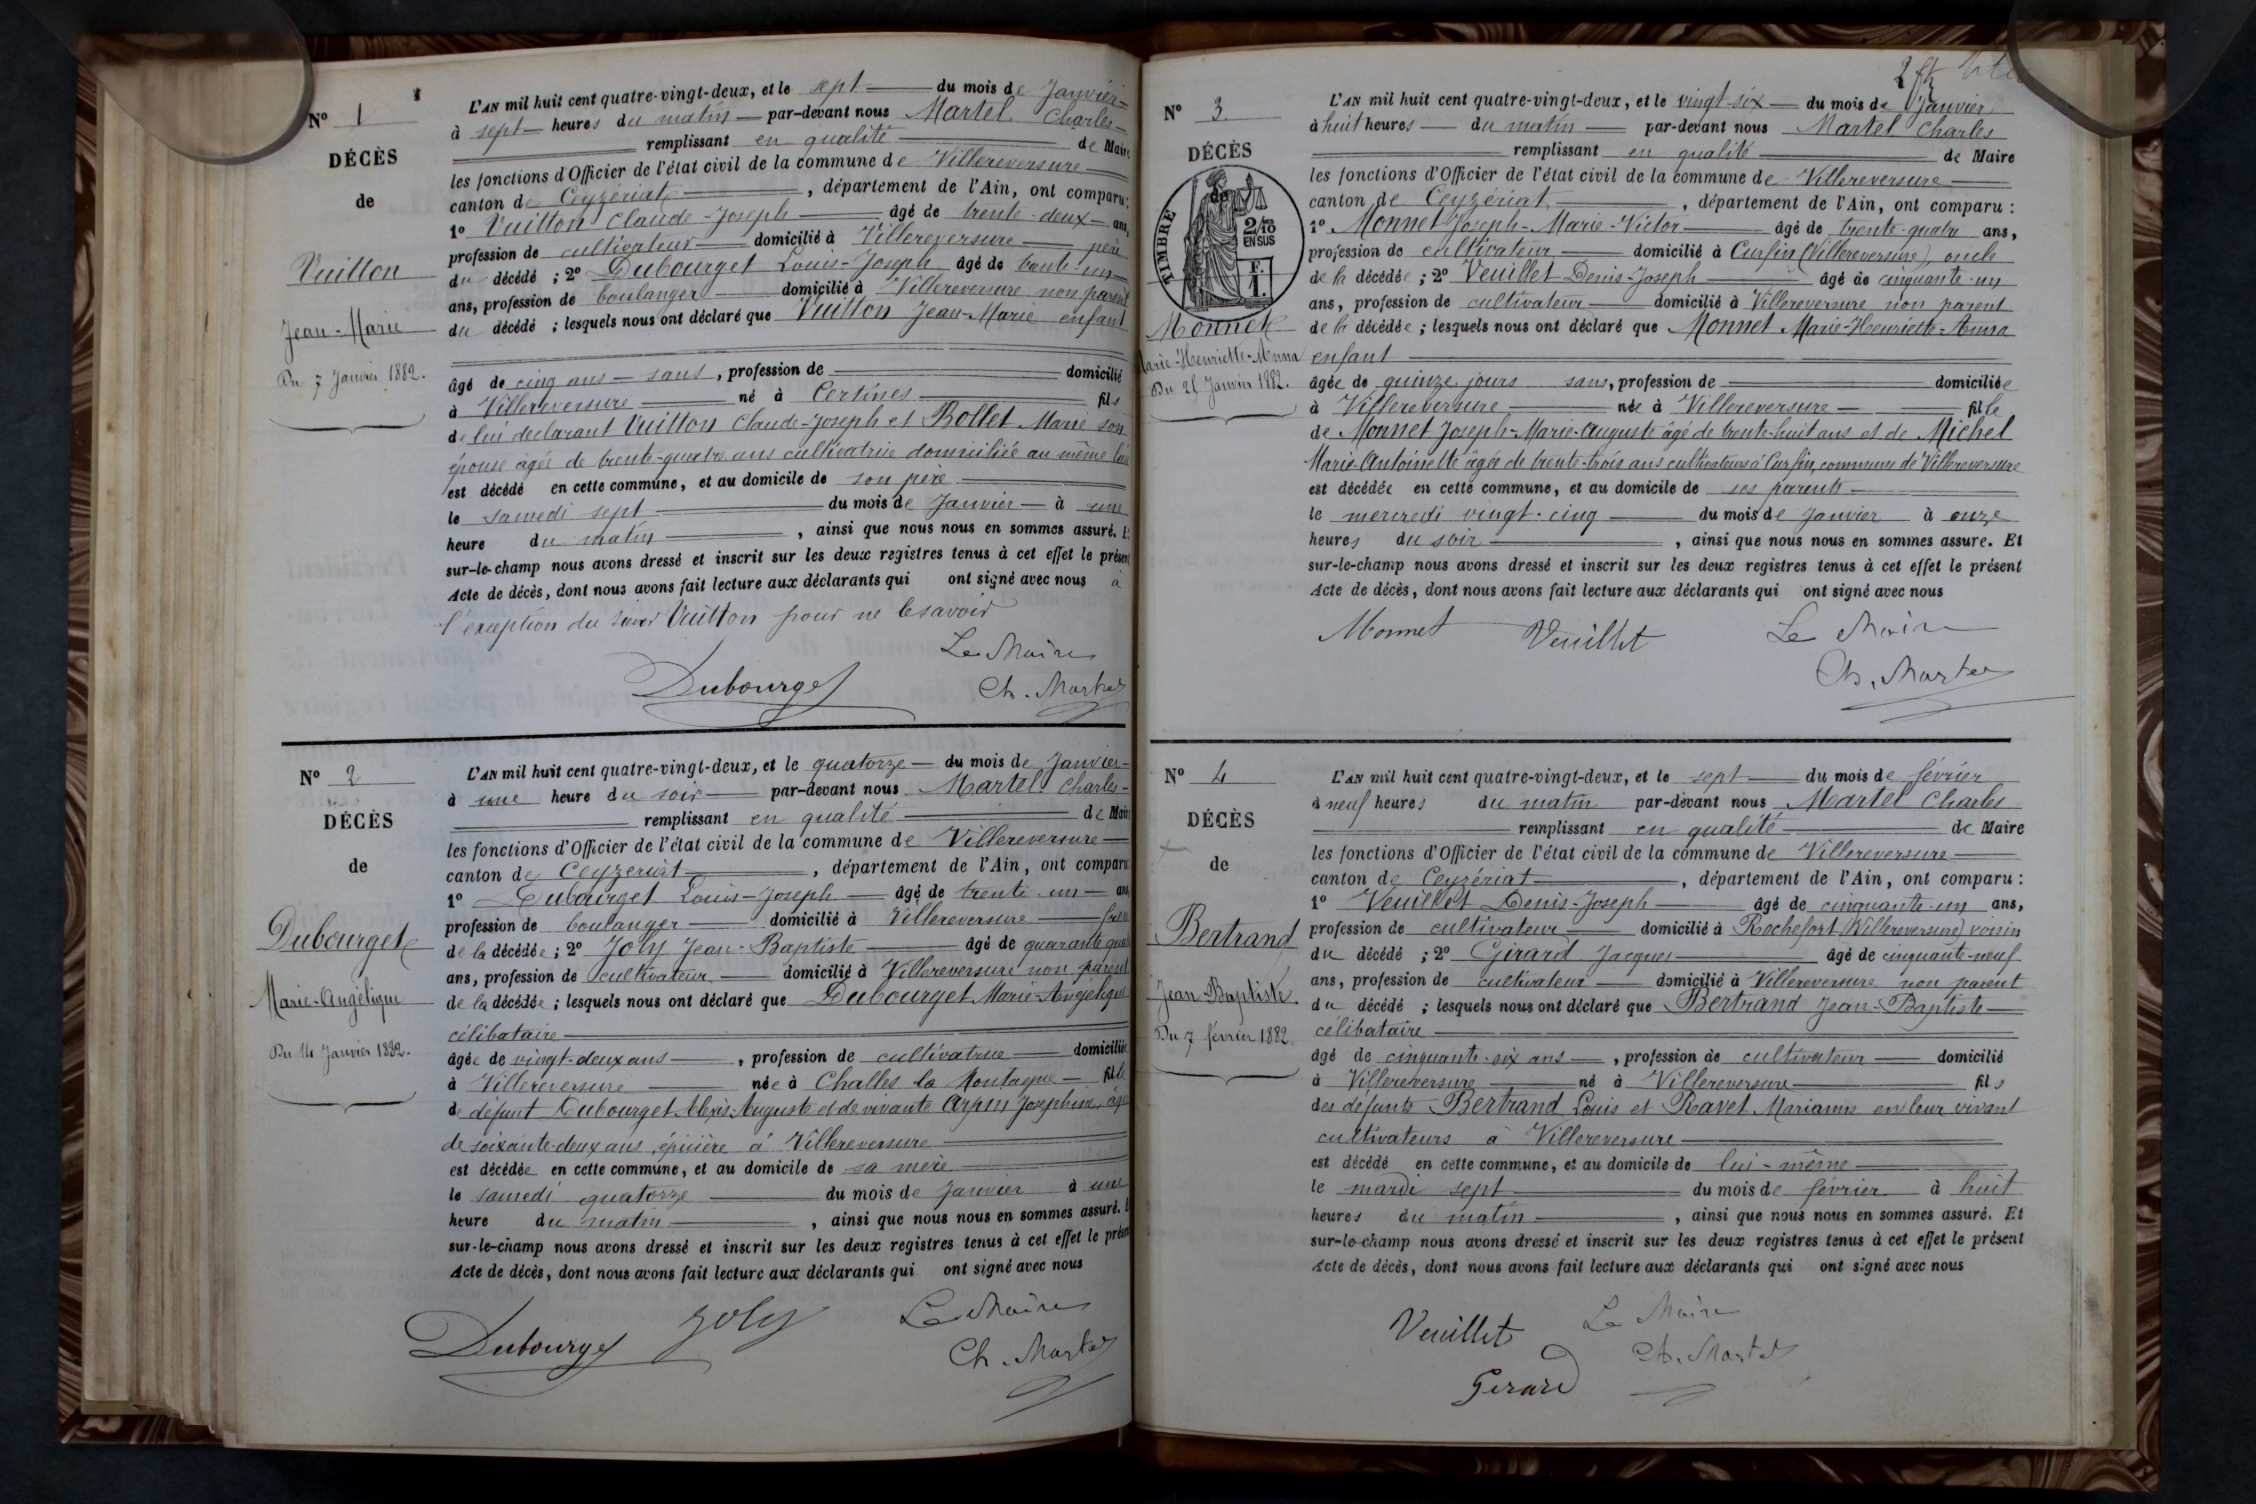 N° 1
DÉCÈS
de
Vuitton
Jean-Marie
Du 7 Janvier 1882.
L'AN mil huit cent quatre-vingt-deux, et le sept du mois de Janvier
à sept heures du matin par-devant nous Martel Charles
remplissant en qualité de Maire
les fonctions d'Officier de l'état civil de la commune de Villereversure
canton de Ceyzériat, département de l'Ain, ont comparu:
1° Vuitton Claude-Joseph âgé de trente-deux ans,
profession de cultivateur domicilié à Villereversure père
du décédé ; 2° Dubourget Louis-Joseph âgé de trente-un
ans, profession de boulanger domicilié à Villereversure non parent
du décédé ; lesquels nous ont déclaré que Vuitton Jean-Marie enfant
âgé de cinq ans sans, profession de domicilié
à Villereversure né à Certines fils
de lui déclarant Vuitton Claude-Joseph et Bollet Marie son
épouse âgée de trente-quatre ans cultivatrice domiciliée au même lieu
est décédé en cette commune, et au domicile de son père
le samedi sept du mois de Janvier à une
heure du matin, ainsi que nous nous en sommes assuré. Et
sur-le-champ nous avons dressé et inscrit sur les deux registres tenus à cet effet le présent
Acte de décès, dont nous avons fait lecture aux déclarants qui ont signé avec nous à
l'exception du sieur Vuitton pour ne le savoir
Le Maire
Dubourget Ch. Martel
N° 2
DÉCÈS
de
Dubourget
Marie-Angélique
Du 14 Janvier 1882.
L'AN mil huit cent quatre-vingt-deux, et le quatorze du mois de Janvier
à une heure du soir par-devant nous Martel Charles
remplissant en qualité de Maire
les fonctions d'Officier de l'état civil de la commune de Villereversure
canton de Ceyzeriat, département de l'Ain, ont comparu
1° Dubourget Louis-Joseph âgé de trente-un ans
profession de boulanger domicilié à Villereversure frère
de la décédée ; 2° Joly Jean-Baptiste âgé de quarante quatre
ans, profession de cultivateur domicilié à Villereversure non parent
de la décédée ; lesquels nous ont déclaré que Dubourget Marie-Angélique
célibataire
âgée de vingt-deux ans, profession de cultivatrice domiciliée
à Villereversure née à Challes la Montagne fille
de défunt Dubourget Alexis-Auguste et de vivante Arpin Josephine, âgée
de soixante-deux ans, épicière à Villereversure
est décédée en cette commune, et au domicile de sa mère
le samedi quatorze du mois de Janvier à une
heure du matin, ainsi que nous nous en sommes assuré. Et
sur-le-champ nous avons dressé et inscrit sur les deux registres tenus à cet effet le présent
Acte de décès, dont nous avons fait lecture aux déclarants qui ont signé avec nous
Dubourget Joly Le Maire
Ch. Martel
N° 3
DÉCÈS
de
TIMBRE
2/10
EN SUS
F.
1.
Monnet
Marie-Henriette-Anna
Du 25 Janvier 1882.
L'AN mil huit cent quatre-vingt-deux, et le vingt-six du mois de Janvier
à huit heures du matin par-devant nous Martel Charles
remplissant en qualité de Maire
les fonctions d'Officier de l'état civil de la commune de Villereversure
canton de Ceyzériat, département de l'Ain, ont comparu :
1° Monnet Joseph-Marie-Victor âgé de trente-quatre ans,
profession de cultivateur domicilié à Curfin (Villereversure), oncle
de la décédée ; 2° Veuillet Denis-Joseph âgé de cinquante-un
ans, profession de cultivateur domicilié à Villereversure non parent
de la décédée ; lesquels nous ont déclaré que Monnet Marie-Henriette-Anna
enfant
âgée de quinze jours sans, profession de domiciliée
à Villereversure née à Villereversure fille
de Monnet Joseph-Marie-Auguste âgé de trente-huit ans et de Michel
Marie-Antoinette âgée de trente-trois ans cultivateurs à Curfin, commune de Villereversure
est décédée en cette commune, et au domicile de ses parents
le mercredi vingt-cinq du mois de Janvier à onze
heures du soir, ainsi que nous nous en sommes assuré. Et
sur-le-champ nous avons dressé et inscrit sur les deux registres tenus à cet effet le présent
Acte de décès, dont nous avons fait lecture aux déclarants qui ont signé avec nous
Monnet Veuillet Le Maire
Ch. Martel
N° 4
DÉCÈS
de
Bertrand
Jean-Baptiste.
Du 7 février 1882.
L'AN mil huit cent quatre-vingt-deux, et le sept du mois de février
à neuf heures du matin par-devant nous Martel Charles
remplissant en qualité de Maire
les fonctions d'Officier de l'état civil de la commune de Villereversure
canton de Ceyzériat, département de l'Ain, ont comparu :
1° Veuillet Denis-Joseph âgé de cinquante-un ans,
profession de cultivateur domicilié à Rochefort (Villereversure) voisin
du décédé ; 2° Girard Jacques âgé de cinquante-neuf
ans, profession de cultivateur domicilié à Villereversure non parent
du décédé ; lesquels nous ont déclaré que Bertrand Jean-Baptiste
célibataire
âgé de cinquante-six ans, profession de cultivateur domicilié
à Villereversure né à Villereversure fils
des défunts Bertrand Louis et Ravet Marianne en leur vivant
cultivateurs à Villereversure
est décédé en cette commune, et au domicile de lui-même
le mardi sept du mois de février à huit
heures du matin, ainsi que nous nous en sommes assuré. Et
sur-le-champ nous avons dressé et inscrit sur les deux registres tenus à cet effet le présent
Acte de décès, dont nous avons fait lecture aux déclarants qui ont signé avec nous
Veuillet Le Maire
Ch. Martel
Girard